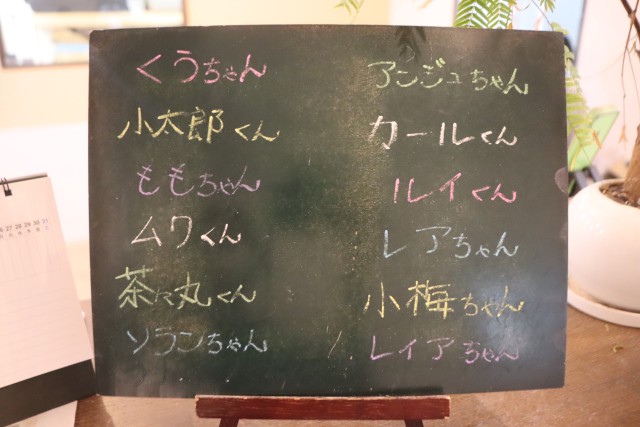 くうちゃん
小太郎くん
ももちゃん
ムワくん
茶に丸くん
ソランちゃん
アンジュちゃん
カールくん
ルイくん
レアちゃん
小梅ちゃん
レイアちゃん
27 28 29 30 31